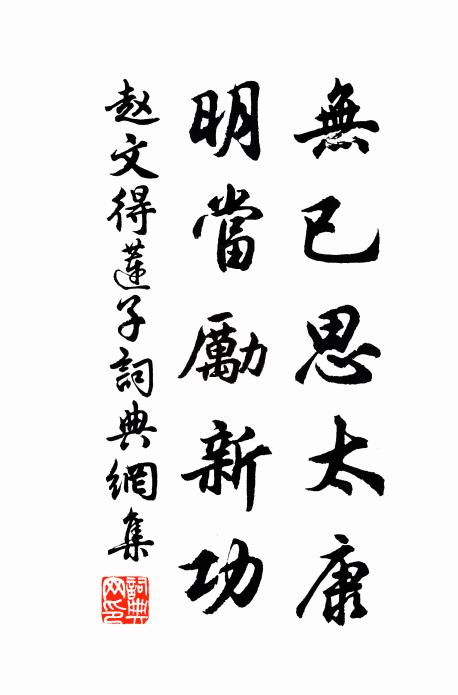 無已思太康
明當勵新功
赵文得蓮子詞典網集
詞典
网印